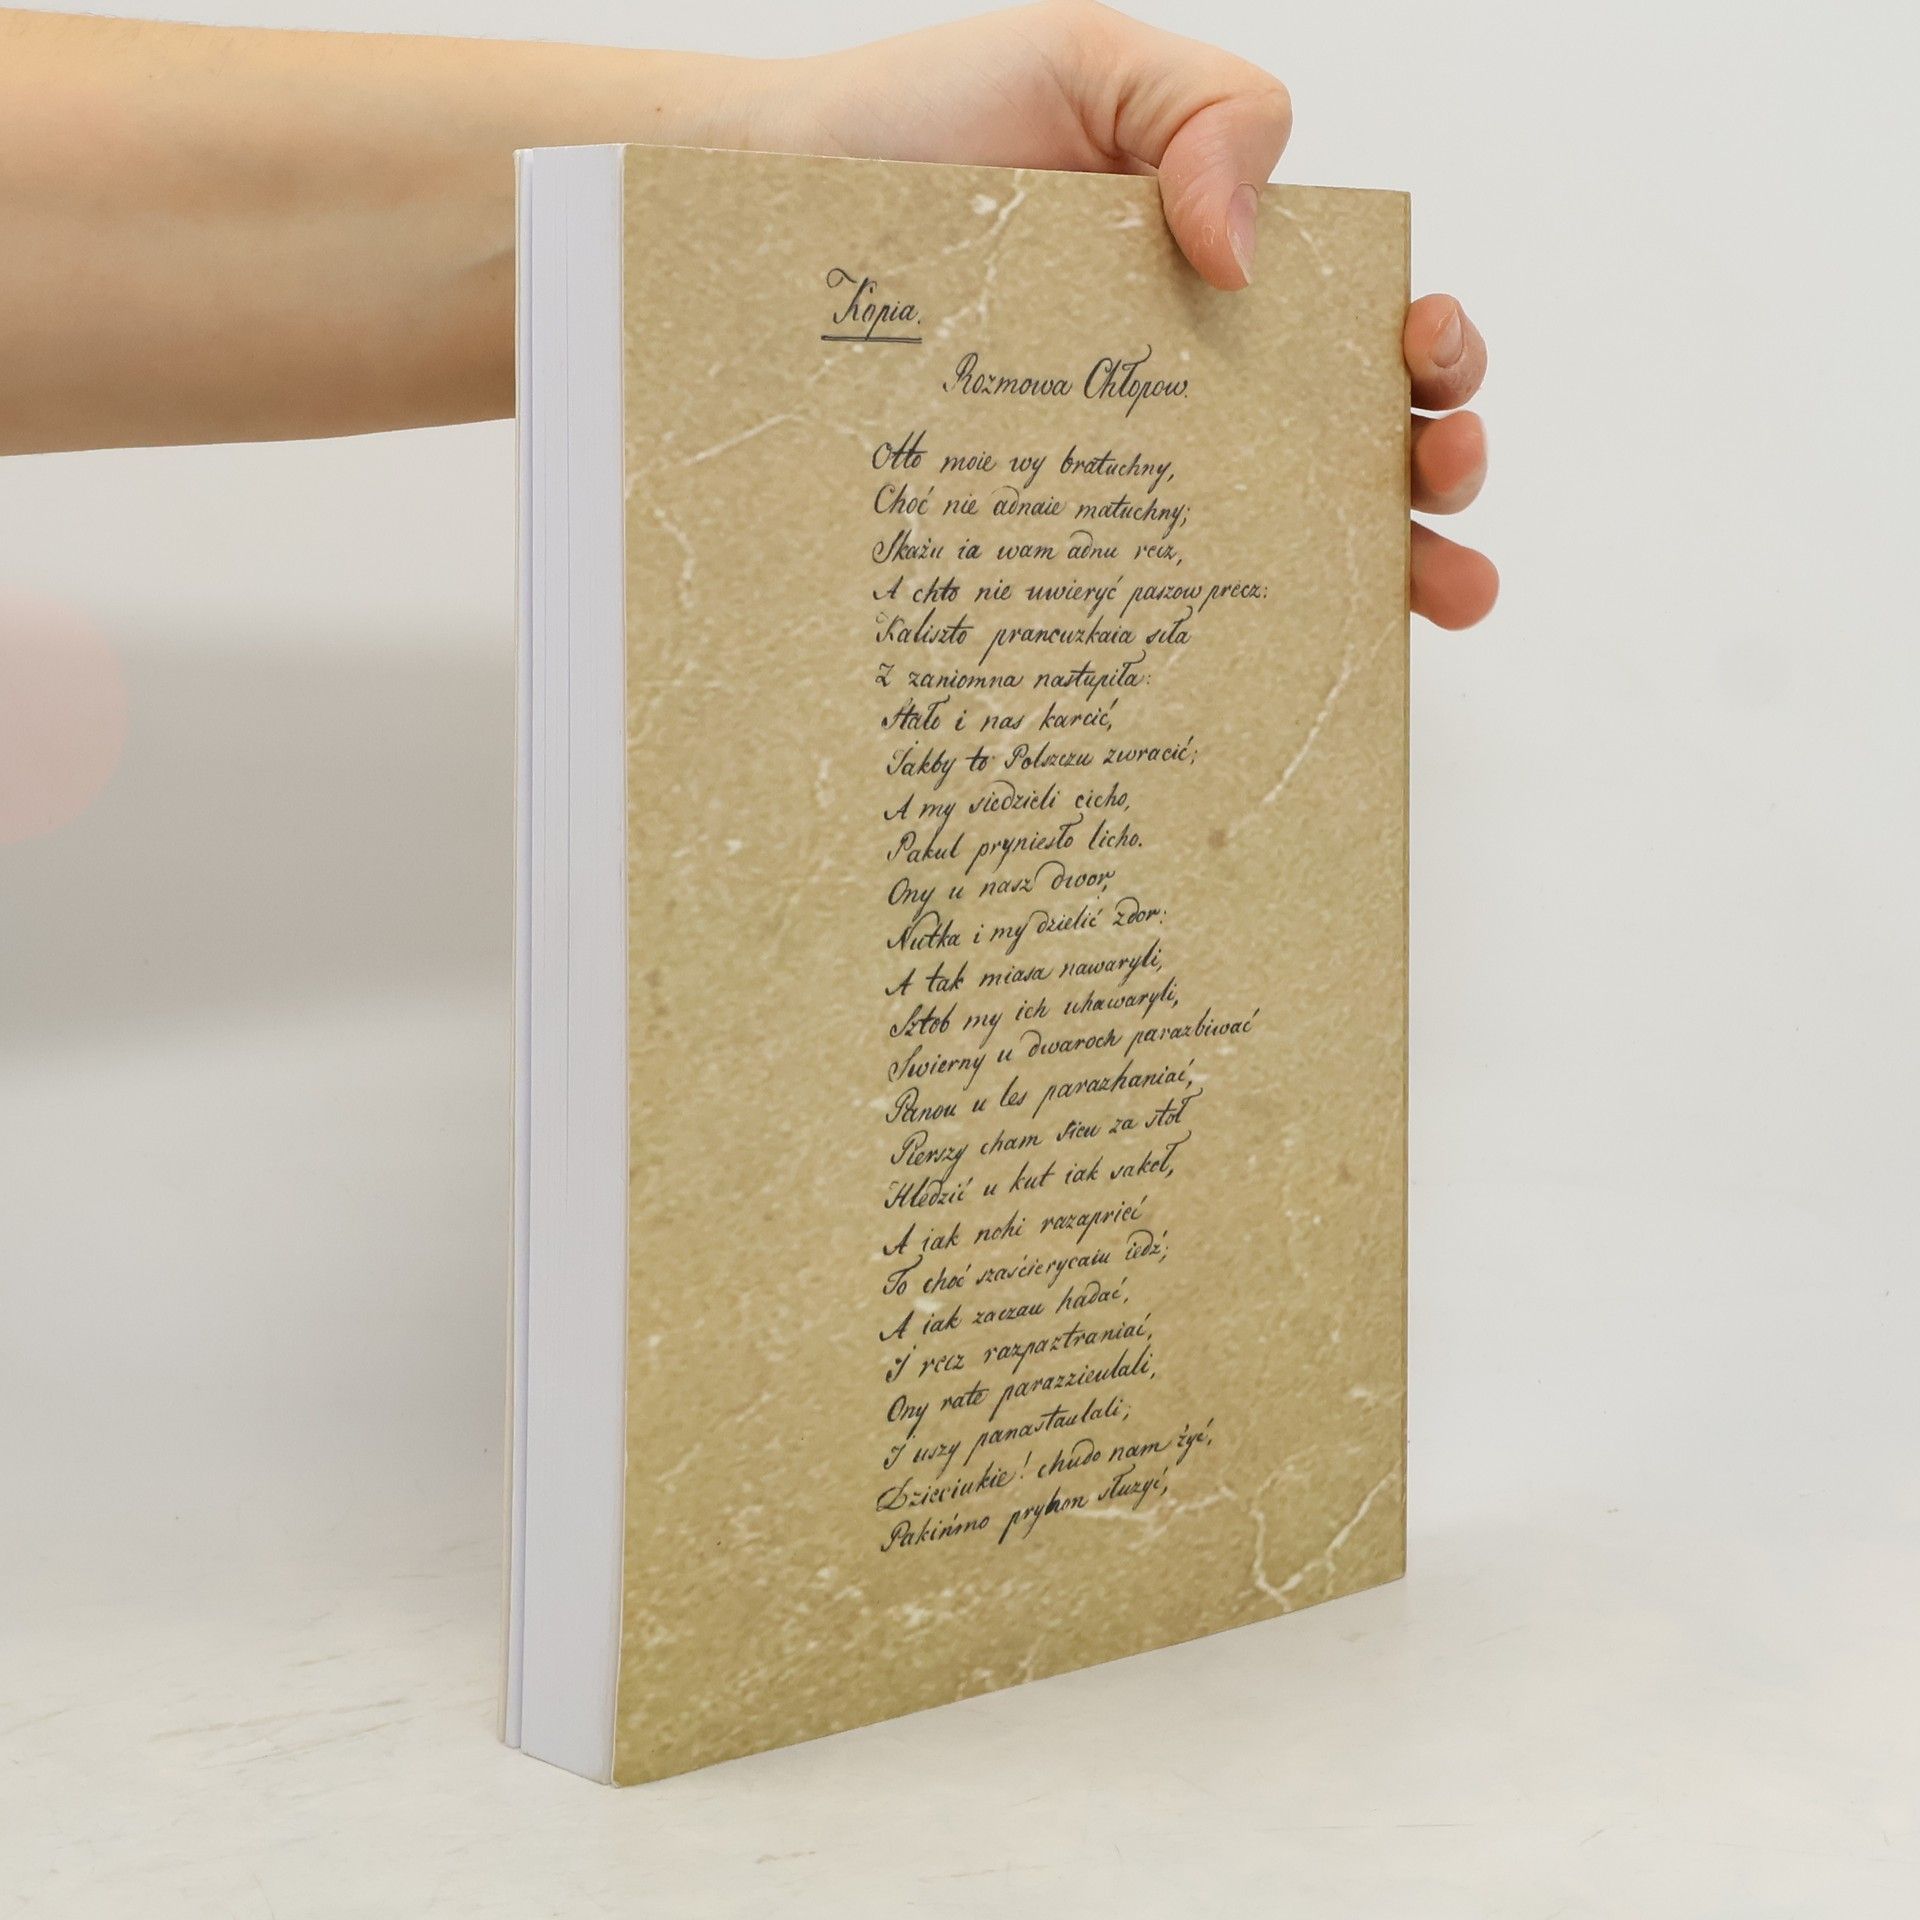 Kopia.
Rozmowa Chłopow.
Otto moie wy bratuchny,
Choć nie adnaie matuchny;
Skażu ia wam adnu recz,
A chto nie uwieryć paszow precz:
Kaliszto prancuzkaia siła
Z zaniomna nastupiła:
Stało i nas karcić,
Jakby to Polszczu zwracić;
A my siedzieli cicho,
Pakul pryniesło licho.
Ony u nasz dwor,
Nutka i my dzielić zdor:
A tak miasa nawaryli,
Sztob my ich uhawaryli,
Swierny u dwaroch parazbiwać
Panou u les parazhaniać,
Pierszy cham sieu za stoł
Hledzić u kut iak sakoł,
A iak nohi razaprieć
To choć szaścierycaiu iedź;
A iak zaczau hadać,
I recz razpaztraniać,
Ony rato parazzieulali,
I uszy panastaulali;
Dzieciukie! chudo nam żyć,
Pakińmo pryhon służyć,